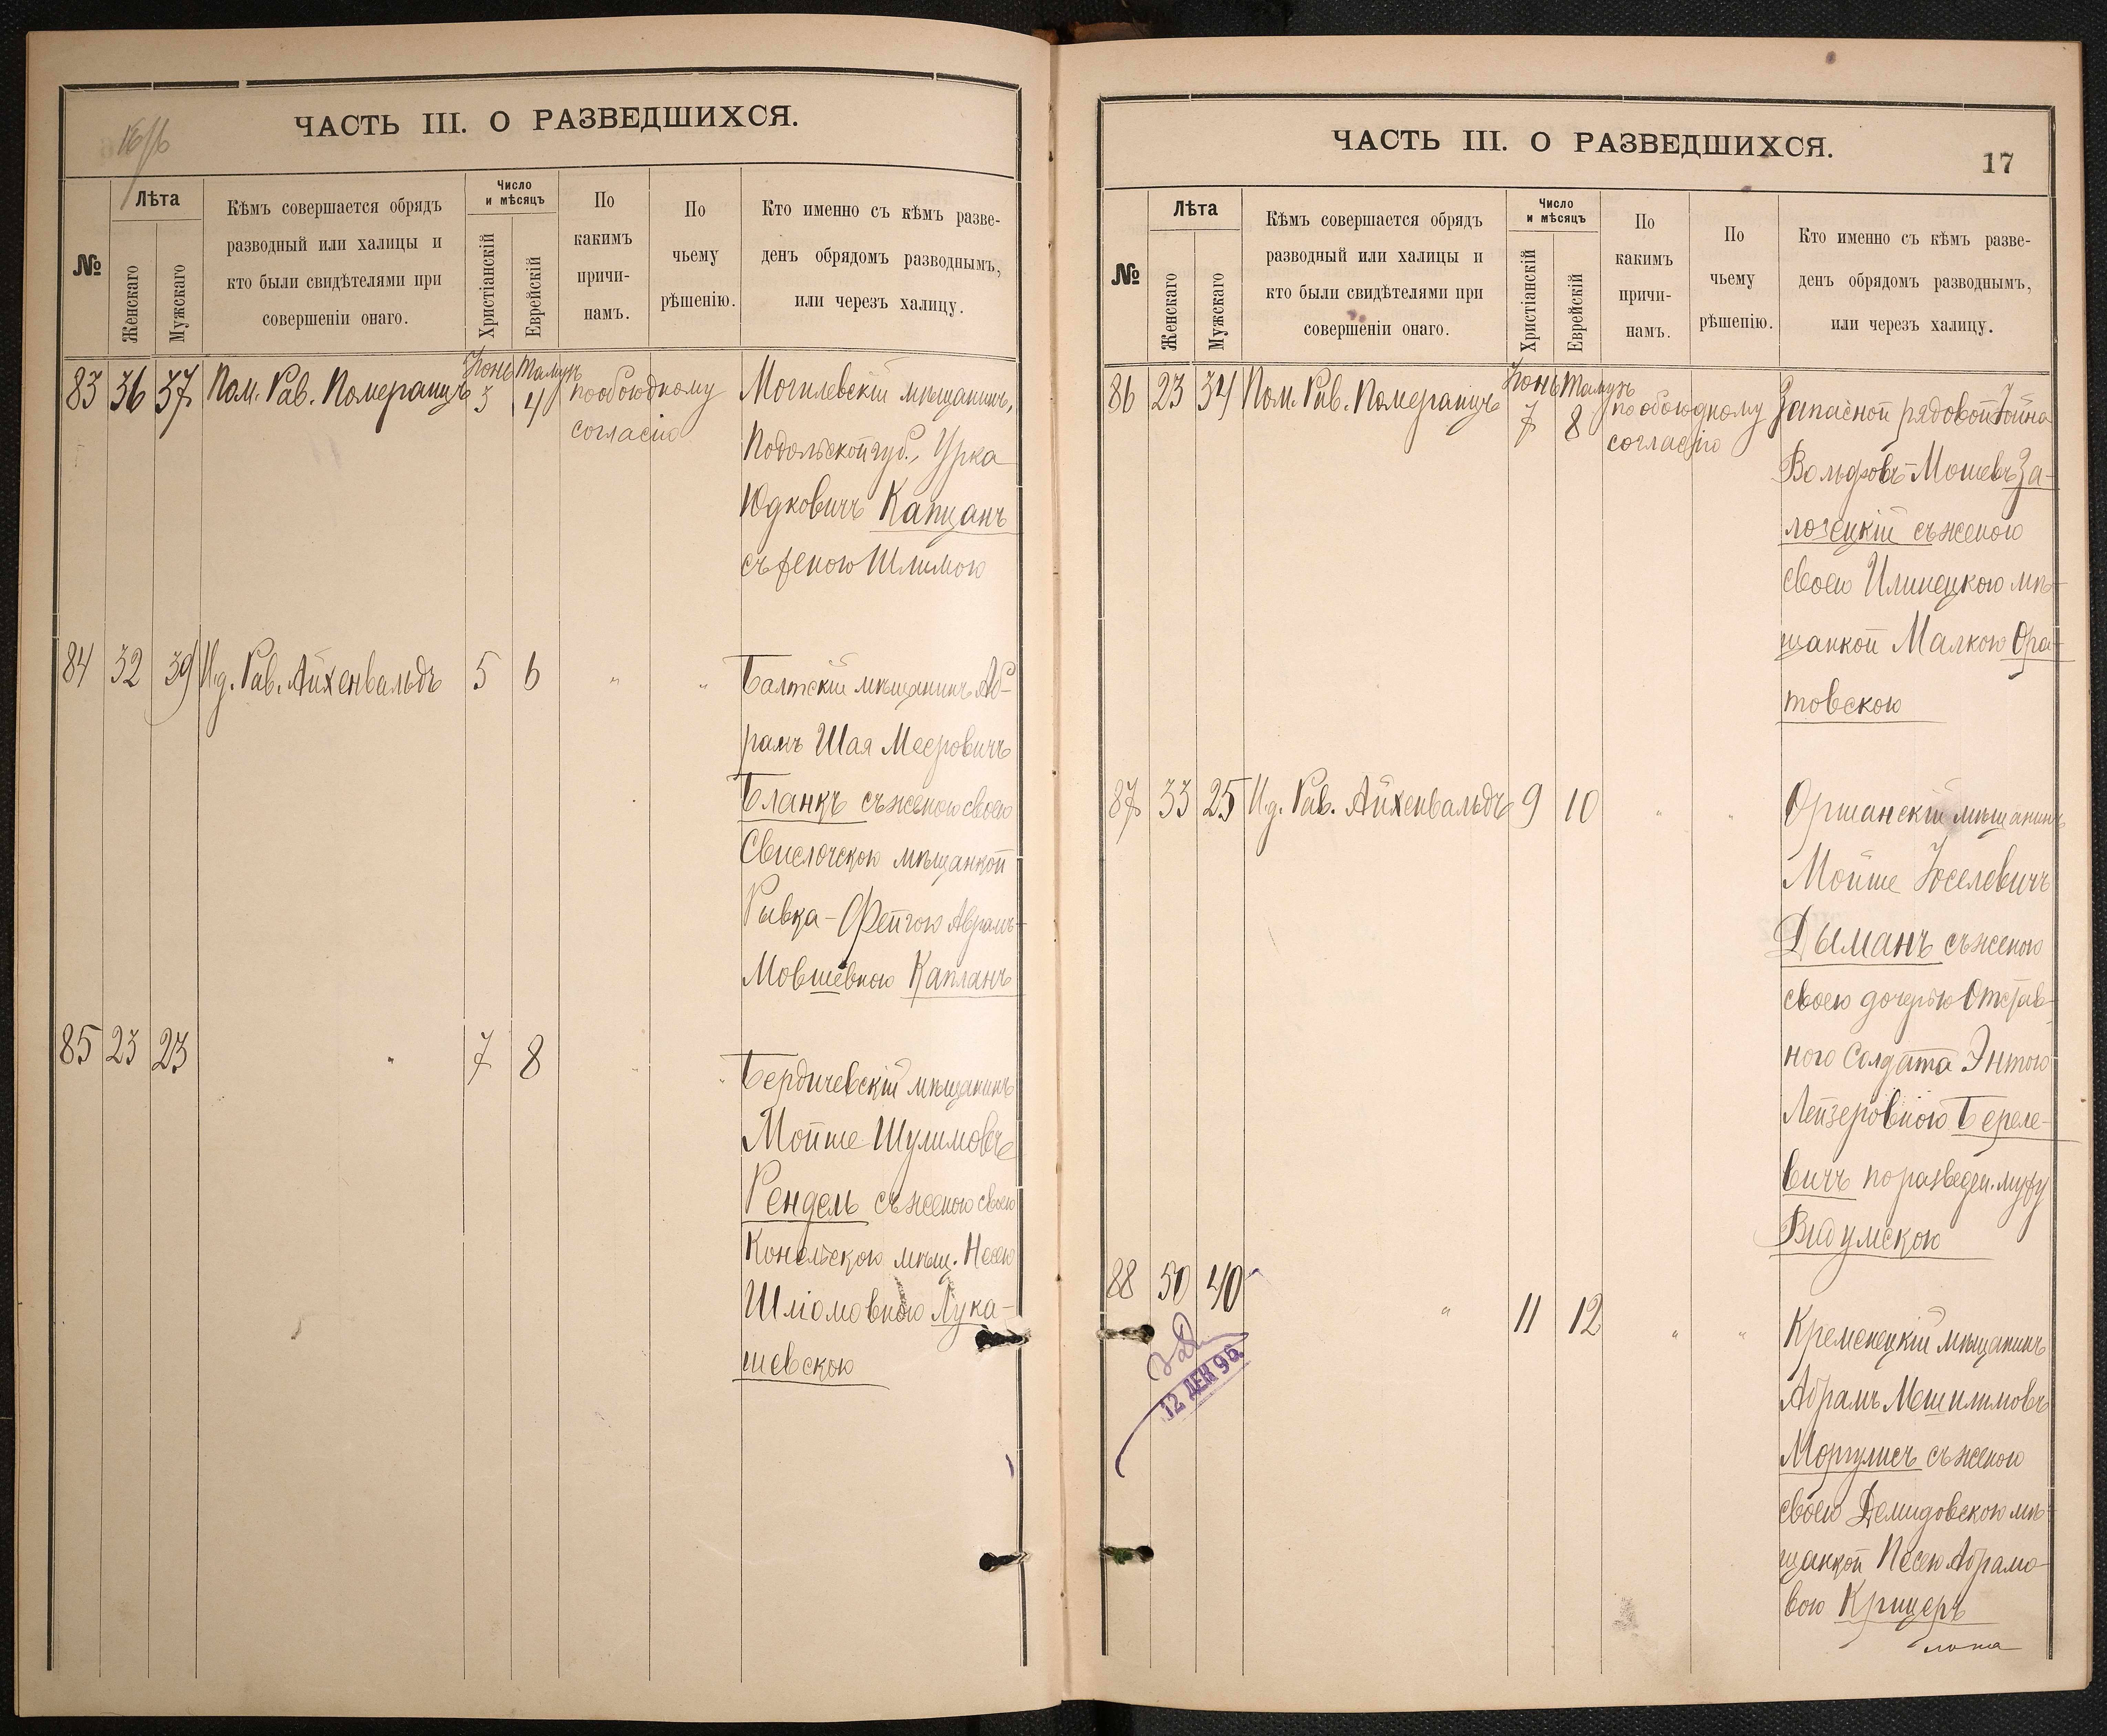 ЧАСТЬ III. О РАЗВЕДШИХСЯ.
№
Лѣта
Женскаго
Мужскаго
Кѣмъ совершается обрядъ
разводный или халицы и
кто были свидѣтелями при
совершеніи онаго.
Число
и мѣсяцъ
Христіанскій
Еврейскій
По
какимъ
причи-
намъ.
По
чьему
рѣшенію.
Кто именно съ кѣмъ разве-
денъ обрядомъ разводнымъ,
или черезъ халицу.
Іюнь Тамузъ
83 36 37 Пом. Рав. Померанцъ 3 4 по обоюдному
согласію
Могилевскій мѣщанинъ,
Подольской губ., Урка
Юдковичъ Капцанъ
съ женою Шлимою
84 32 39 И.д. Рав. Айхенвальдъ 5 6 " "
Балтскій мѣщанинъ Аб-
рамъ Шая Мееровичъ
Бланкъ съ женою своею
Свислочскою мѣщанкой
Рывка-Фейгою Абрамъ-
Мовшевною Капланъ
85 23 23 " 7 8 " "
Бердичевскій мѣщанинъ
Мойше Шулимовъ
Рендель съ женою своею
Конельскою мѣщ. Несею
Шліомовною Лука-
шевскою
ЧАСТЬ III. О РАЗВЕДШИХСЯ.
17
№
Лѣта
Женскаго
Мужскаго
Кѣмъ совершается обрядъ
разводный или халицы и
кто были свидѣтелями при
совершеніи онаго.
Число
и мѣсяцъ
Христіанскій
Еврейскій
По
какимъ
причи-
намъ.
По
чьему
рѣшенію.
Кто именно съ кѣмъ разве-
денъ обрядомъ разводнымъ,
или черезъ халицу.
Іюнь Тамузъ
86 23 34 Пом. Рав. Померанцъ 7 8 по обоюдному
согласію
Запасной рядовой Іойна
Вольфовъ-Мошевъ За-
лозецкій съ женою
своею Илинецкою мѣ-
щанкой Малкою Ора-
товскою
87 33 25 И.д. Рав. Айхенвальдъ 9 10 " "
Оршанскій мѣщанинъ
Мойше Іоселевичъ
Дыманъ съ женою
своею дочерью Отстав-
ного Солдата Энтою
Лейзеровною Береле-
вичъ по разведен. мужу
Видумскою
88 50 40 " 11 12 " "
Кременецкій мѣщанинъ
Абрамъ Мешилимовъ
Моргулисъ съ женою
своею Демидовскою мѣ-
щанкой Песею Абрамо-
вою Крицеръ
12 ДЕК 96